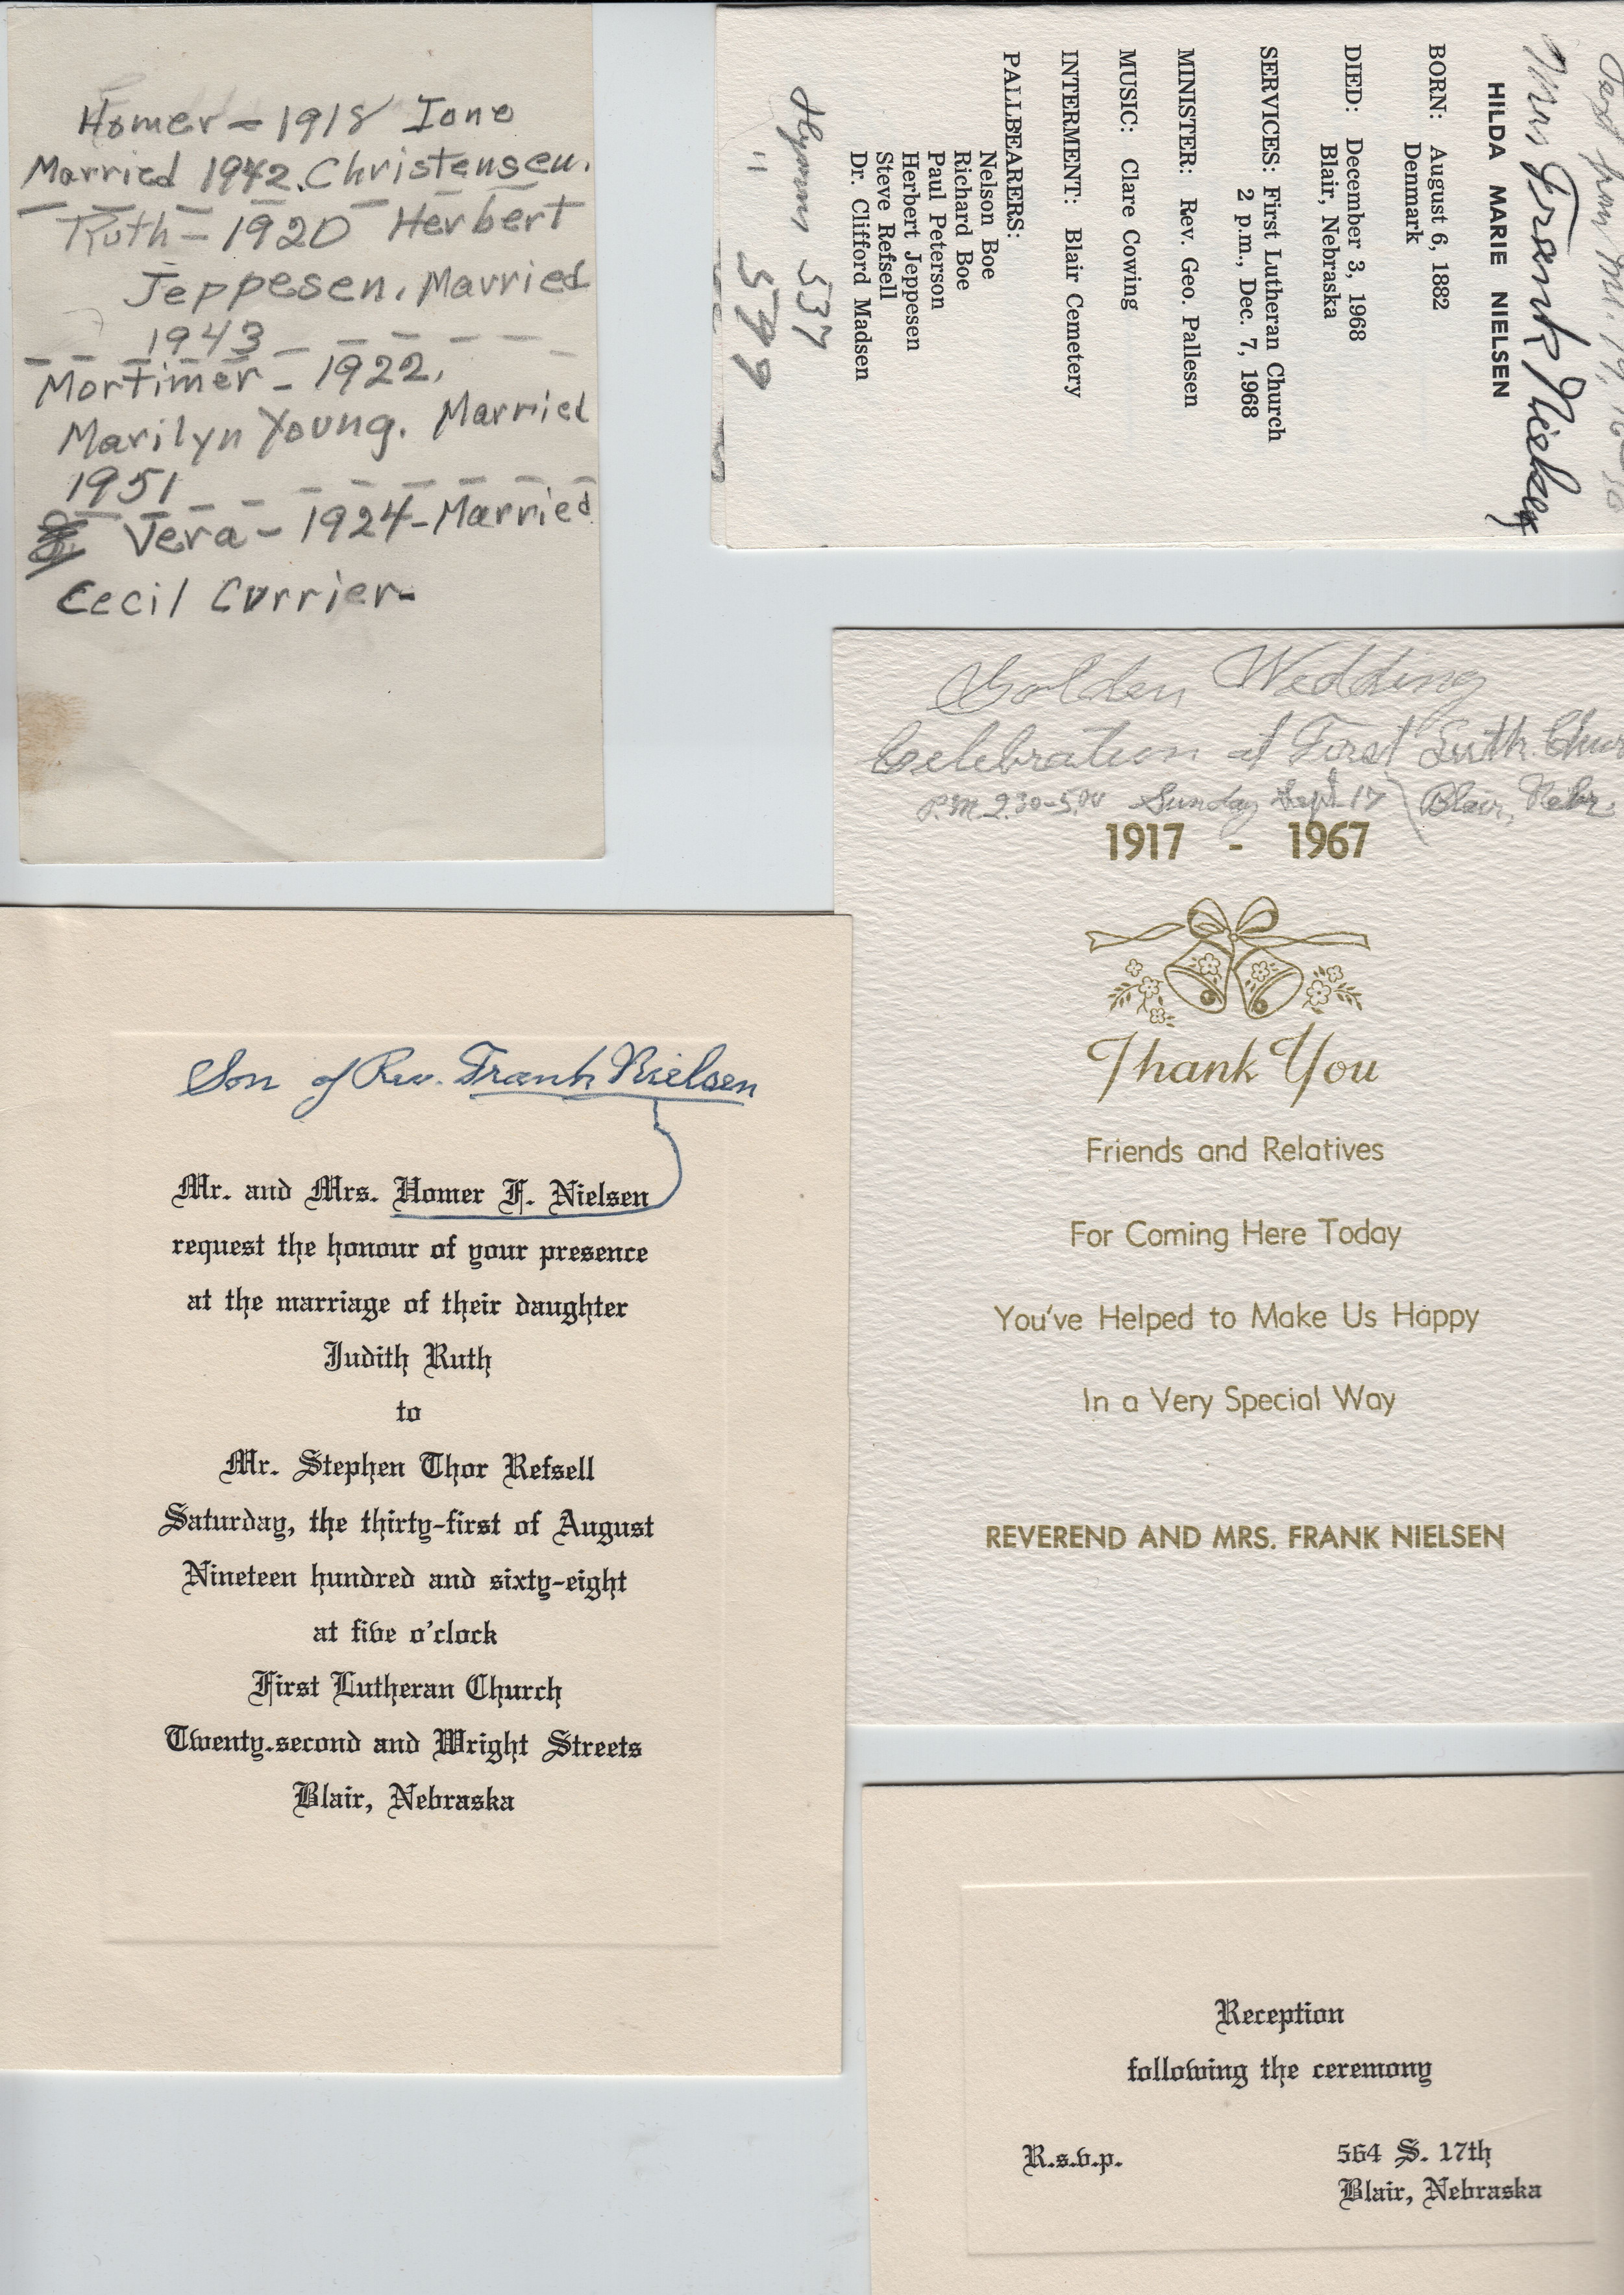 Homer - 1918 Ione
Married 1942. Christensen.
Ruth - 1920 Herbert
Jeppesen. Married
1943
Mortimer - 1922,
Marilyn Young. Married
1951
Vera - 1924 - Married
Cecil Currier-
Text from
Mrs Frank Nielsen
HILDA MARIE NIELSEN
BORN: August 6, 1882
Denmark
DIED: December 3, 1968
Blair, Nebraska
SERVICES: First Lutheran Church
2 p.m., Dec. 7, 1968
MINISTER: Rev. Geo. Pallesen
MUSIC: Clare Cowing
INTERMENT: Blair Cemetery
PALLBEARERS:
Nelson Boe
Richard Boe
Paul Peterson
Herbert Jeppesen
Steve Refsell
Dr. Clifford Madsen
Hymns 537
" 599
Golden Wedding
Celebration at First Luth. Chur
P.M. 2.30-5.00 Sunday Sept 17 Blair, Nebr.
1917 - 1967
Thank You
Friends and Relatives
For Coming Here Today
You've Helped to Make Us Happy
In a Very Special Way
REVEREND AND MRS. FRANK NIELSEN
Son of Rev. Frank Nielsen
Mr. and Mrs. Homer F. Nielsen
request the honour of your presence
at the marriage of their daughter
Judith Ruth
to
Mr. Stephen Thor Refsell
Saturday, the thirty-first of August
Nineteen hundred and sixty-eight
at five o'clock
First Lutheran Church
Twenty-second and Wright Streets
Blair, Nebraska
Reception
following the ceremony
R.s.v.p.
564 S. 17th
Blair, Nebraska